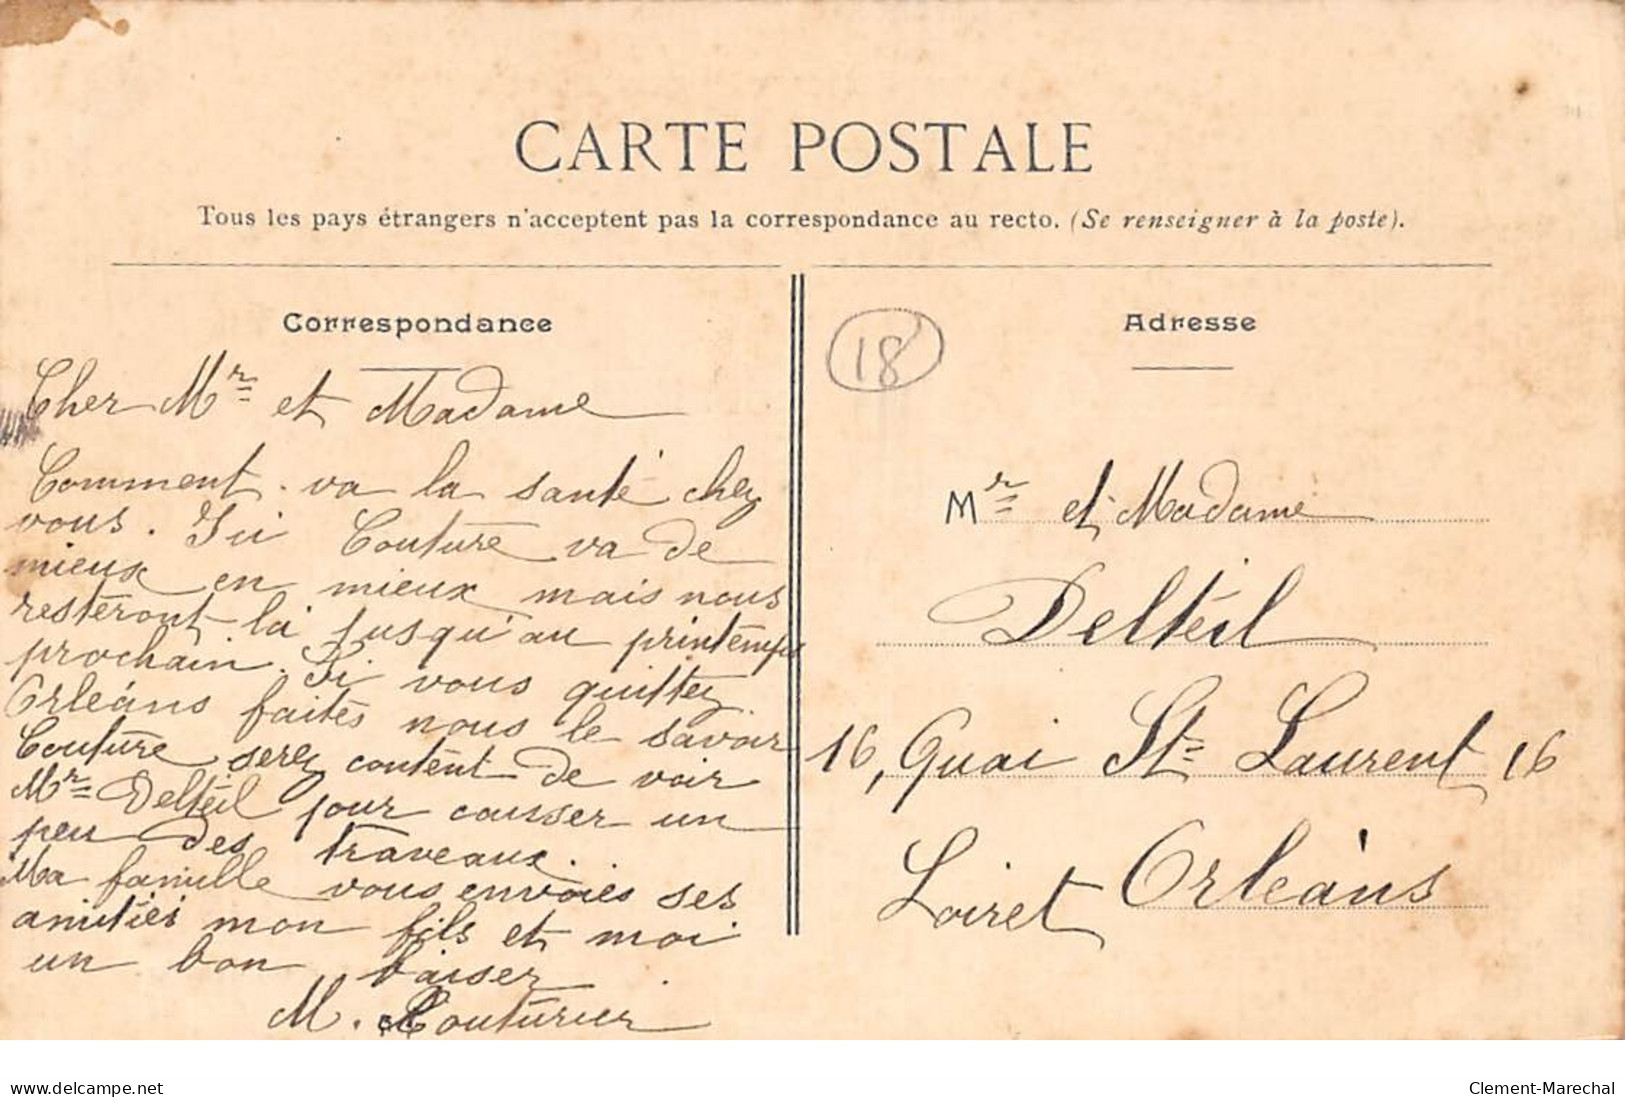 CARTE POSTALE
Tous les pays étrangers n'acceptent pas la correspondance au recto. (Se renseigner à la poste).
Correspondance
Cher Mr et Madame
Comment va la santé chez
vous. Ici Couture va de
mieux en mieux mais nous
resteront la jusqu'au printemps
prochain. Si vous quittez
Orléans faites nous le savoir
Couture serez content de voir
Mr Delteil pour causser un
peu des traveaux.
Ma famille vous envoies ses
amitiés mon fils et moi
un bon baiser
M. Couturier
18
Adresse
Mr et Madame
Delteil
16, Quai St Laurent 16
Loiret Orléans
www.delcampe.net
Clement-Marechal